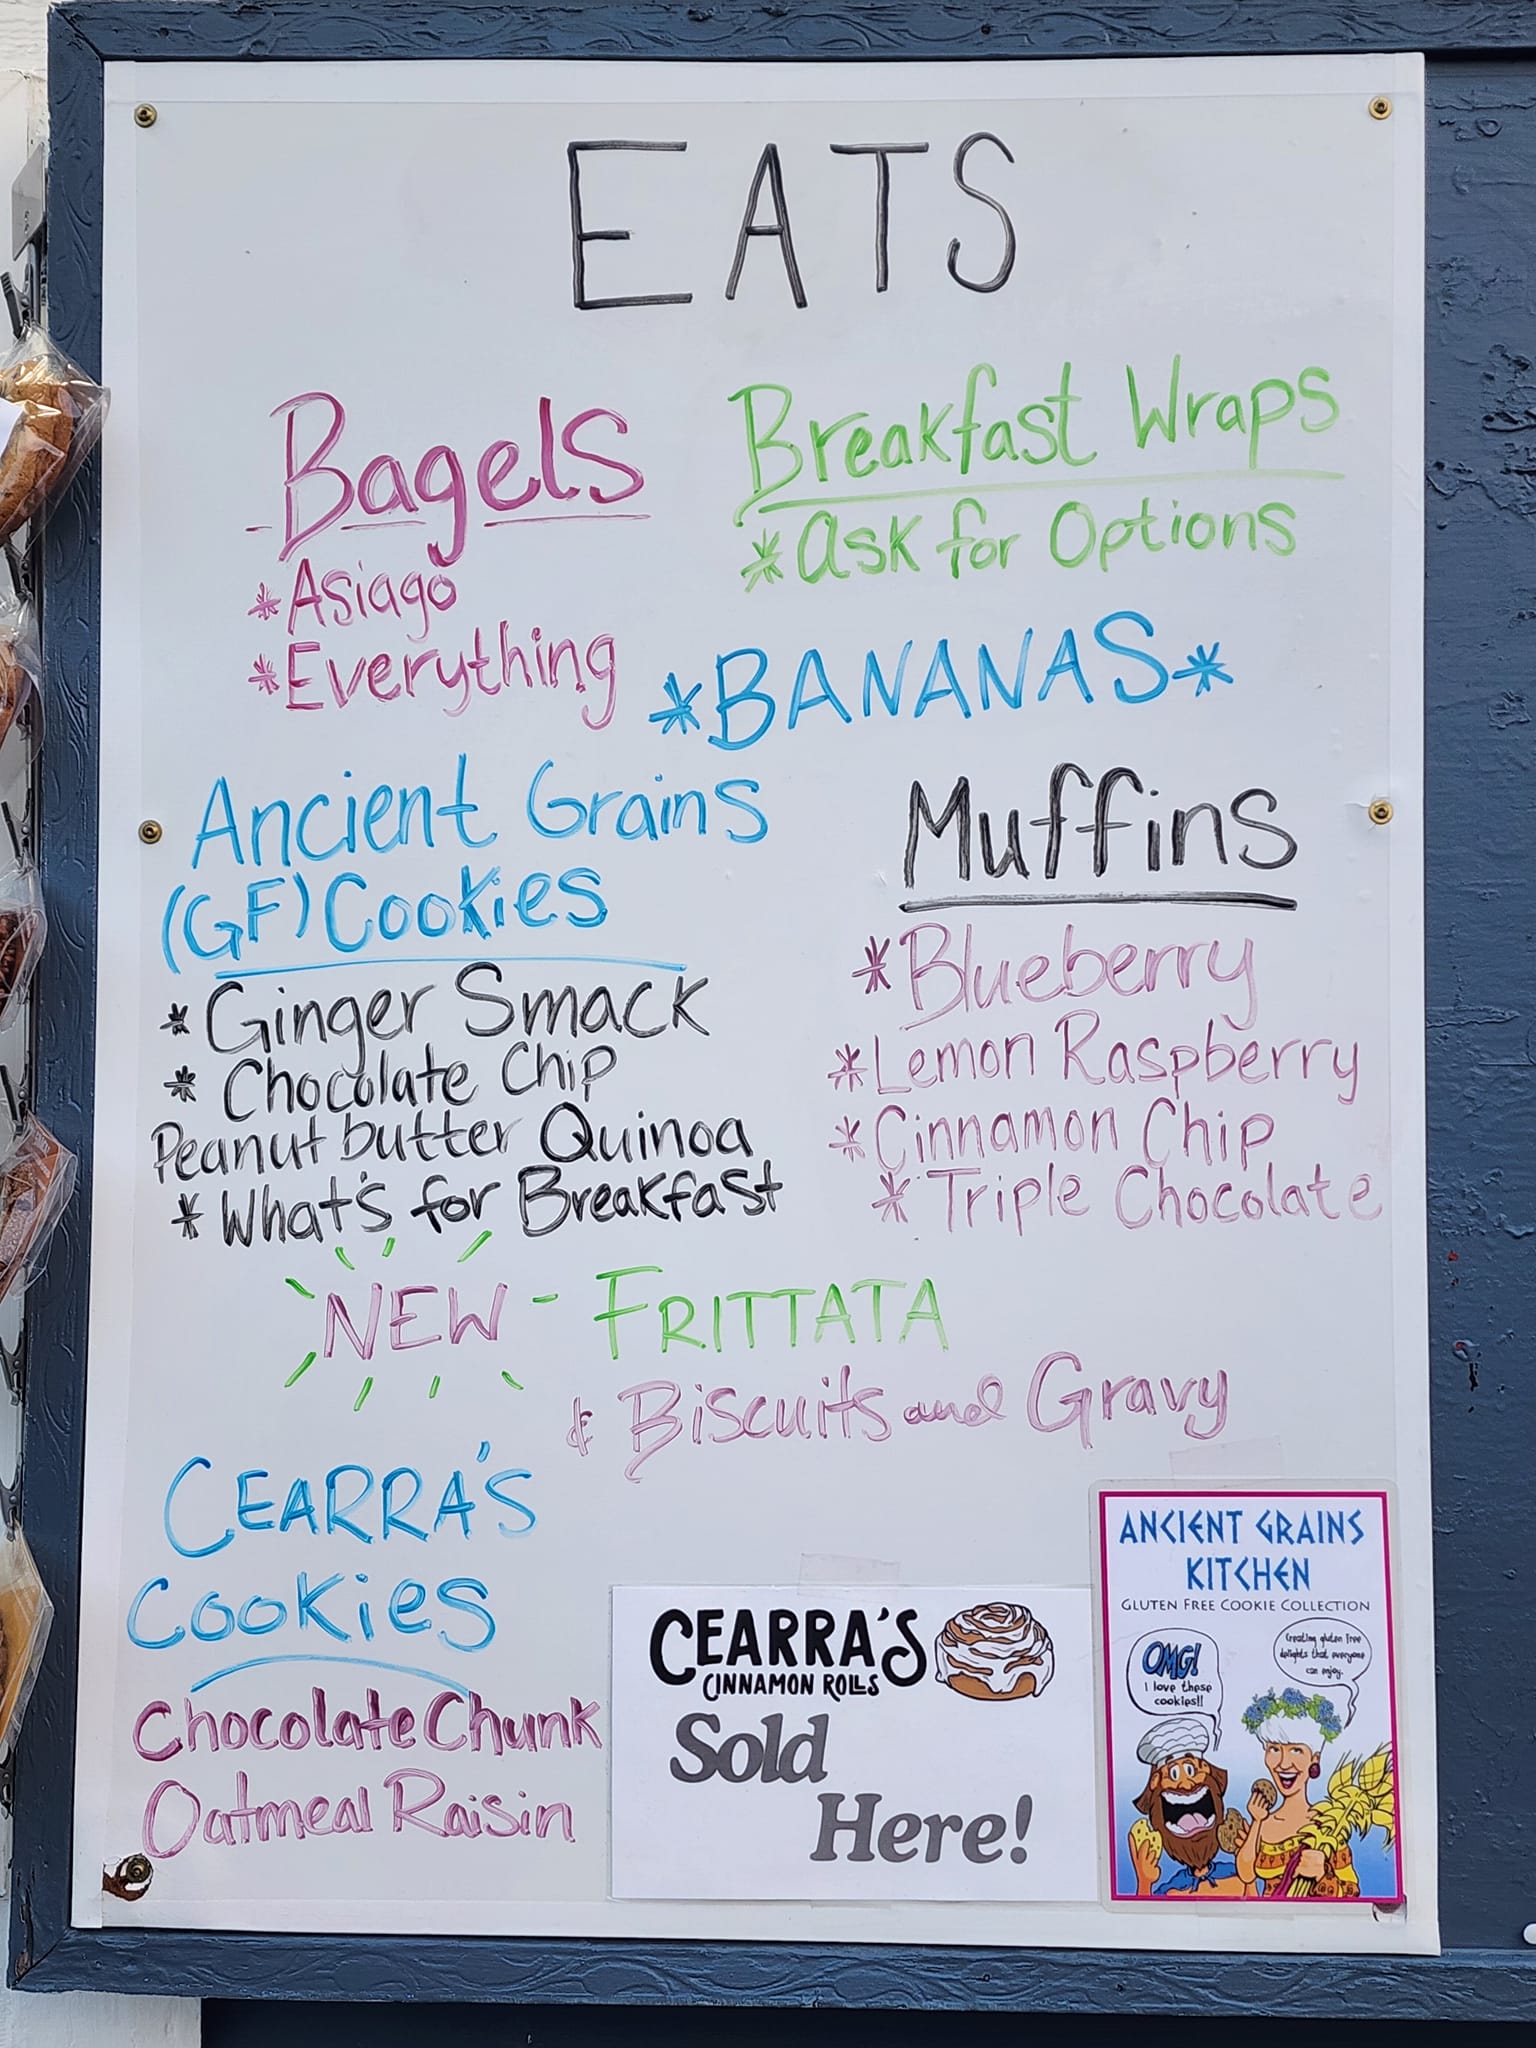 EATS
Bagels
*Asiago
*Everything
Breakfast Wraps
*Ask for Options
*BANANAS*
Ancient Grains
(GF) Cookies
*Ginger Smack
*Chocolate Chip
Peanut butter Quinoa
*What's for Breakfast
Muffins
*Blueberry
*Lemon Raspberry
*Cinnamon Chip
*Triple Chocolate
NEW - FRITTATA
& Biscuits and Gravy
CEARRA'S
Cookies
Chocolate Chunk
Oatmeal Raisin
CEARRA'S
CINNAMON ROLLS
Sold
Here!
ANCIENT GRAINS
KITCHEN
GLUTEN FREE COOKIE COLLECTION
OMG!
I love these
cookies!!
Creating gluten free
delights that everyone
can enjoy.